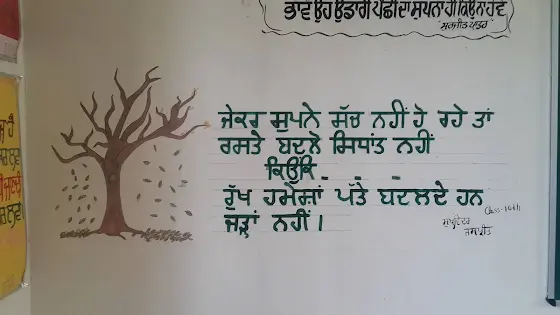 ਭਾਵੇਂ ਉਹ ਉਡਾਰੀ ਪੰਛੀ ਦਾ ਸੁਪਨਾ ਹੀ ਕਿਉਂ ਨਾ ਹੋਵੇ
ਸੁਰਜੀਤ ਪਾਤਰ
ਜੇਕਰ ਸੁਪਨੇ ਸੱਚ ਨਹੀਂ ਹੋ ਰਹੇ ਤਾਂ
ਰਸਤੇ ਬਦਲੋ ਸਿਧਾਂਤ ਨਹੀਂ
ਕਿਉਂਕਿ - - - -
ਰੁੱਖ ਹਮੇਸ਼ਾਂ ਪੱਤੇ ਬਦਲਦੇ ਹਨ
ਜੜ੍ਹਾਂ ਨਹੀਂ।
Class-10th
ਜਸਪ੍ਰੀਤ